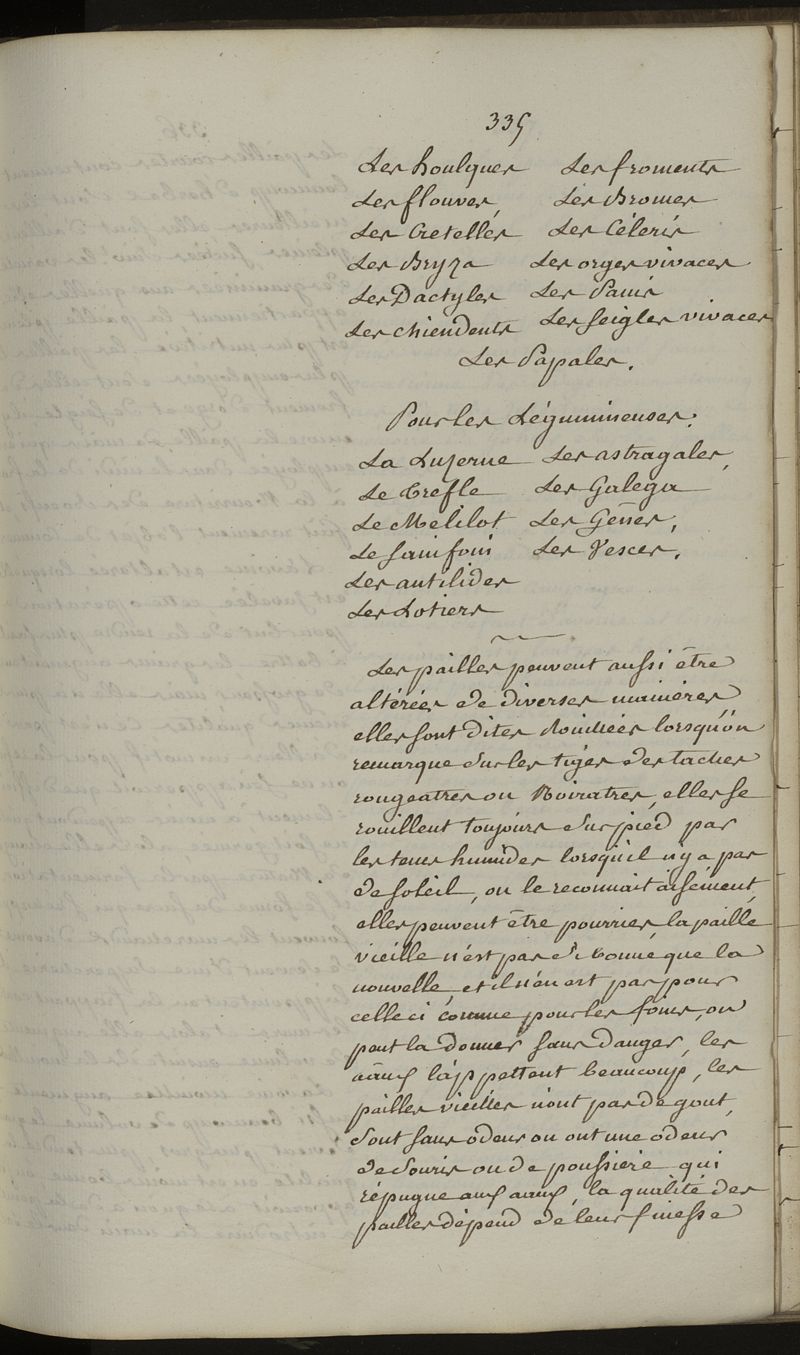 335
Les houlques Les froments
Les flouves, Les Bromes
Les Cretelles Les Céleris
Les Bryza Les orges vivaces
Les Dactyles Les Panis
Les chiendents Les seigles vivaces
Les Papales.
Pour les Légumineuses.
La Luzerne Les astragales,
Le Trefle Les Galega
Le Melilot Les Gênes,
Le sainfoin Les Vesces,
Les antilides
Les Lotiers
Les pailles peuvent aussi être
altérées de diverses manières,
elles sont dites Rouillées lorsqu'on
remarque sur les tiges des taches
rougeatres ou Noiratres, elles se
rouillent toujours sur pied par
les tems humides lorsqu'il n'y a pas
de soleil, on le reconnait aisément,
elles peuvent être pourries, la paille
vieille n'est pas si bonne que la
nouvelle, et il n'en est pas pour
celle ci comme pour les foins, on
peut la donner sans danger, les
aãux l'appettent beaucoup, les
pailles vieilles n'ont pas de gout,
sont sans odeur ou ont une odeur
de souris ou de poussiere qui
répugne aux aaux, la qualité des
pailles dépend de leur finesse